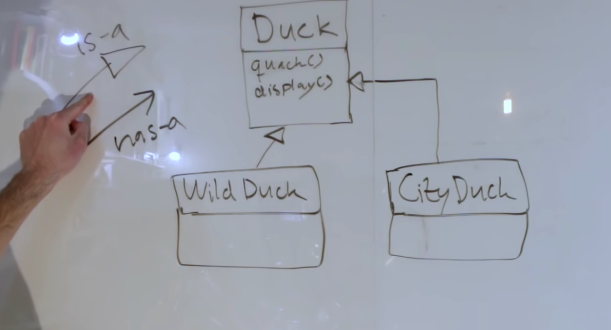 is-a
has-a
Duck
quack()
display()
Wild Duck
City Duck